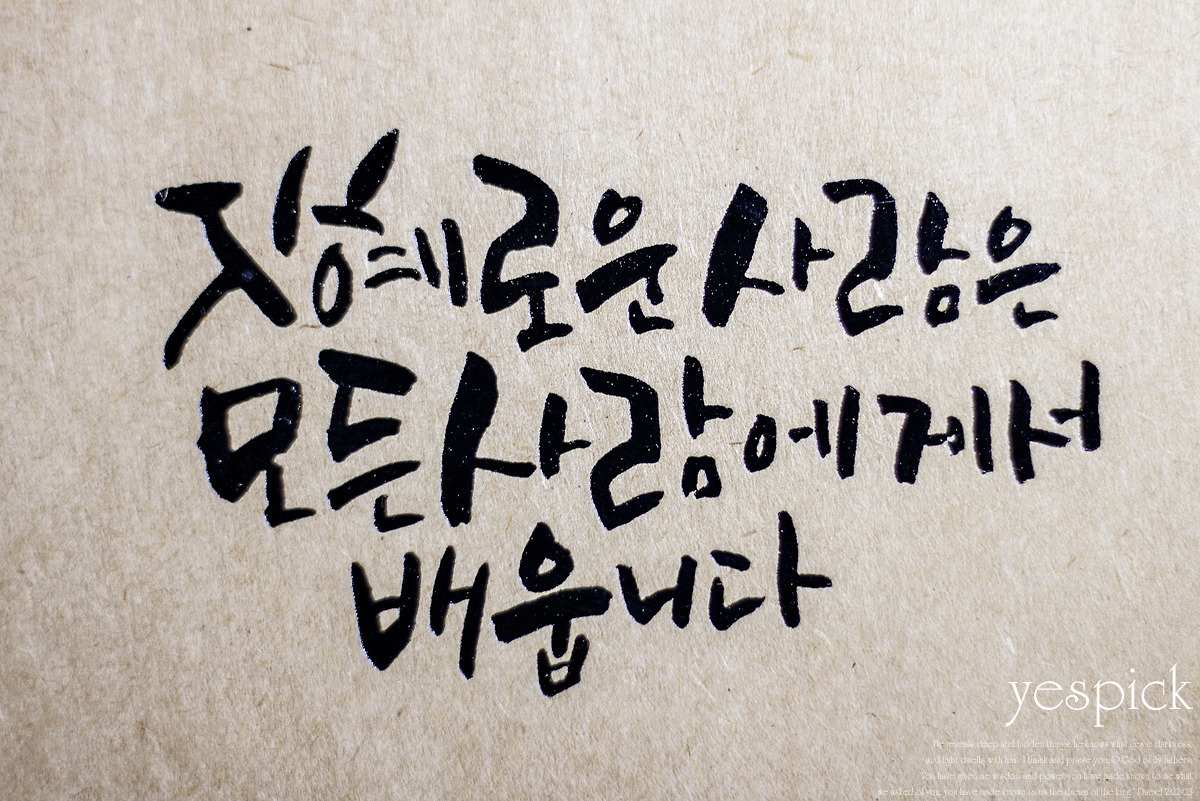 지혜로운 사람은
모든 사람에게서
배웁니다
yespick
He reveals deep and hidden things; he knows what lies in darkness,
and light dwells with him. I thank and praise you, O God of my fathers:
You have given me wisdom and power, you have made known to me what
we asked of you, you have made known to us the dream of the king."